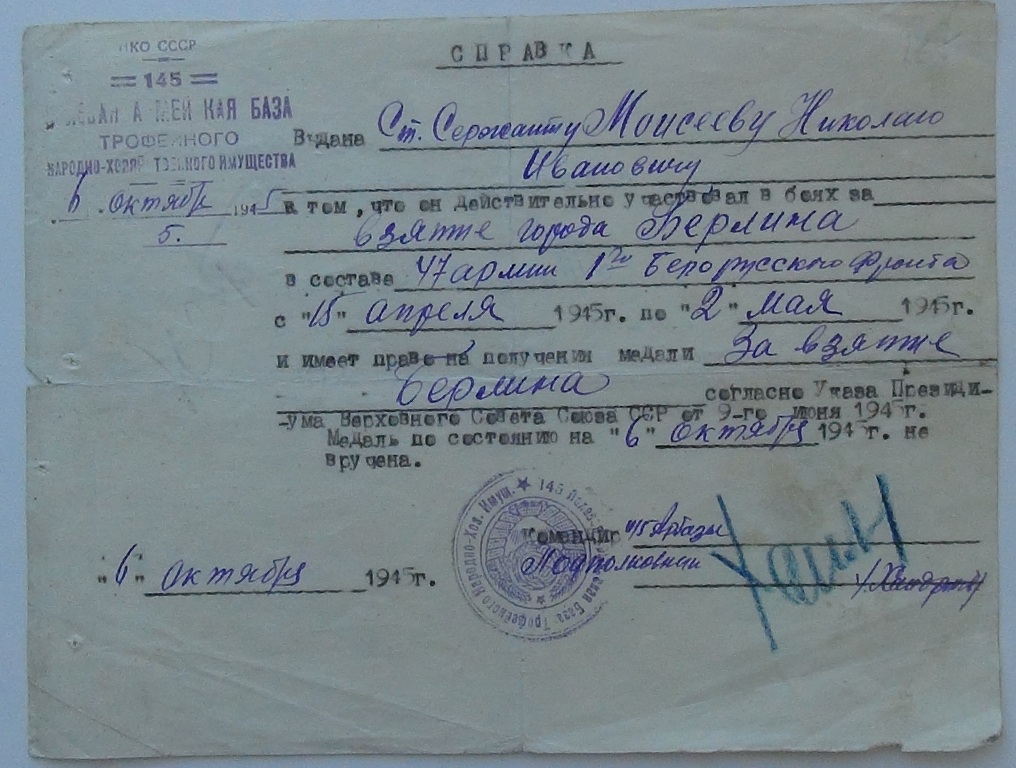 НКО СССР
145
ПОЛЕВАЯ АРМЕЙСКАЯ БАЗА
ТРОФЕЙНОГО
НАРОДНО-ХОЗЯЙСТВЕННОГО ИМУЩЕСТВА
6 октября 1945
5.
СПРАВКА
Выдана Ст. Сержанту Моисееву Николаю
Ивановичу
в том, что он действительно участвовал в боях за
взятие города Берлина
в состава 47 армии 1го Белорусского Фронта
с "15" апреля 1945г. по "2" мая 1945г.
и имеет право на получении медали За взятие
Берлина согласно Указа Президи-
-ума Верховного Совета Союза ССР от 9-го июня 1945г.
Медаль по состоянию на "6" октября 1945г. не
вручена.
Командир 145 Арбазы
Подполковник
"6" октября 1945г.
145 Полев. База Трофейного Народно-Хоз. Имущ.